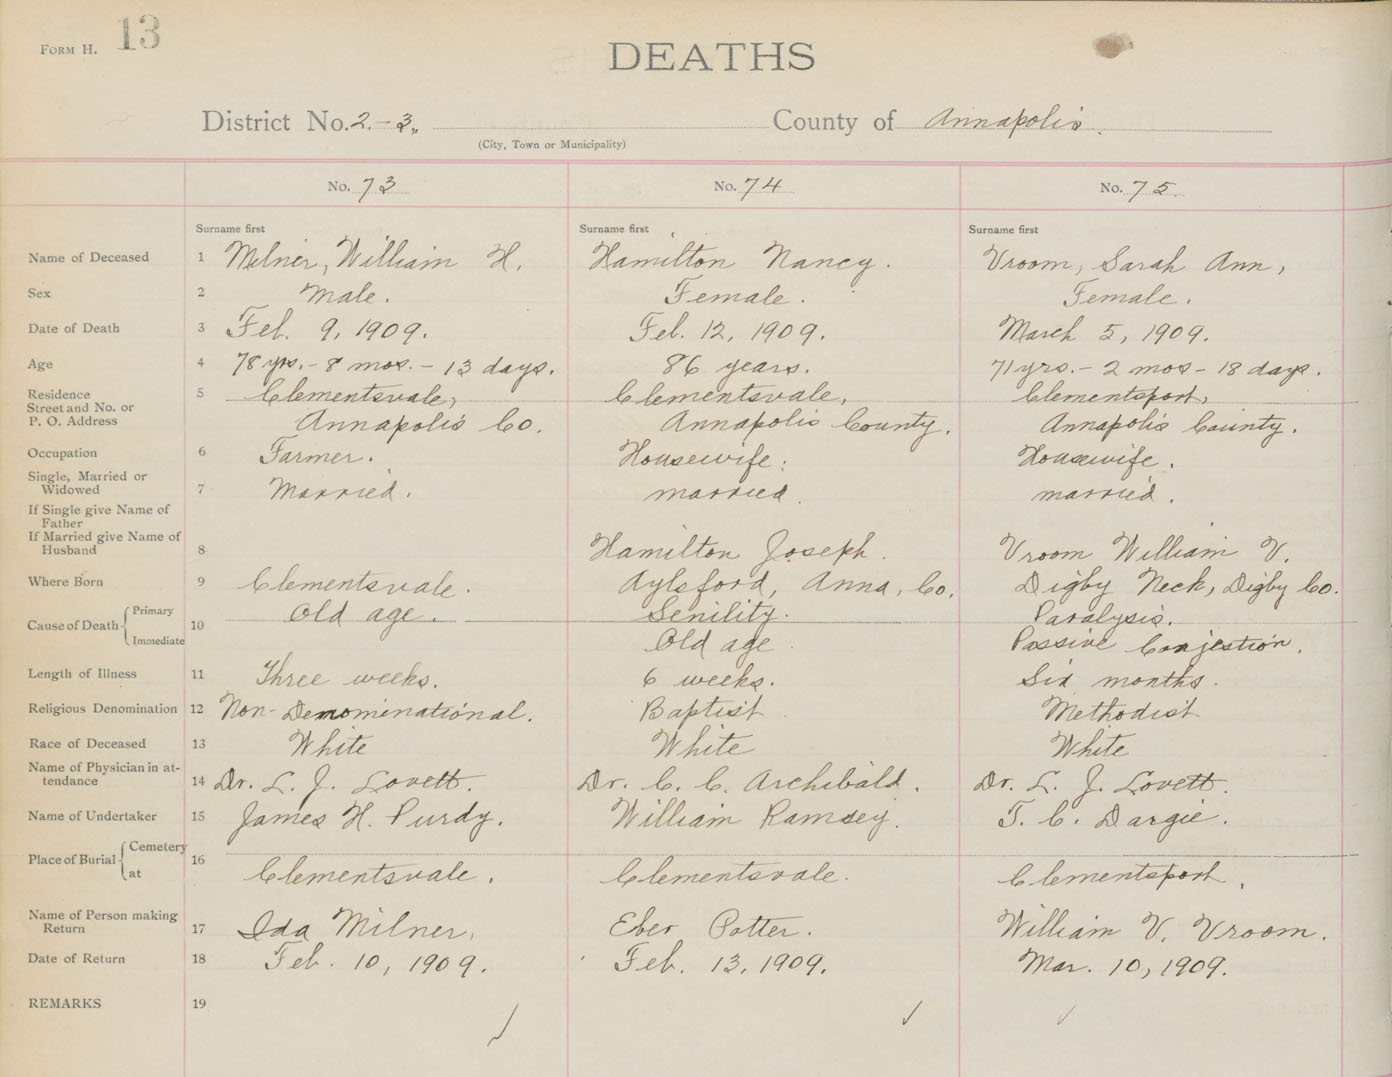 FORM H. 13
DEATHS
District No. 2.-3. County of Annapolis.
(City, Town or Municipality)
No. 73 No. 74 No. 75
Surname first Surname first Surname first
Name of Deceased 1 Milner, William H. Hamilton Nancy. Vroom, Sarah Ann,
Sex 2 Male. Female. Female.
Date of Death 3 Feb. 9, 1909. Feb. 12, 1909. March 5, 1909.
Age 4 78 yrs. - 8 mos. - 13 days. 86 years. 71 yrs. - 2 mos - 18 days.
Residence 5 Clementsvale, Clementsvale, Clementsport,
Street and No. or
P. O. Address Annapolis Co. Annapolis County. Annapolis County.
Occupation 6 Farmer. Housewife. Housewife.
Single, Married or
Widowed 7 Married. married. married.
If Single give Name of
Father
If Married give Name of
Husband 8 Hamilton Joseph. Vroom William V.
Where Born 9 Clementsvale. Aylsford, Anna, Co. Digby Neck, Digby Co.
Cause of Death Primary 10 Old age. Senility. Paralysis.
Immediate Old age Passive Conjestion.
Length of Illness 11 Three weeks. 6 weeks. Six months.
Religious Denomination 12 Non-Denominational. Baptist Methodist
Race of Deceased 13 White White White
Name of Physician in at-
tendance 14 Dr. L. J. Lovett. Dr. C. C. Archibald. Dr. L. J. Lovett.
Name of Undertaker 15 James H. Purdy. William Ramsey. T. C. Dargie.
Place of Burial Cemetery 16
at Clementsvale. Clementsvale. Clementsport.
Name of Person making
Return 17 Ida Milner, Eber Potter. William V. Vroom.
Date of Return 18 Feb. 10, 1909. Feb. 13, 1909. Mar. 10, 1909.
REMARKS 19